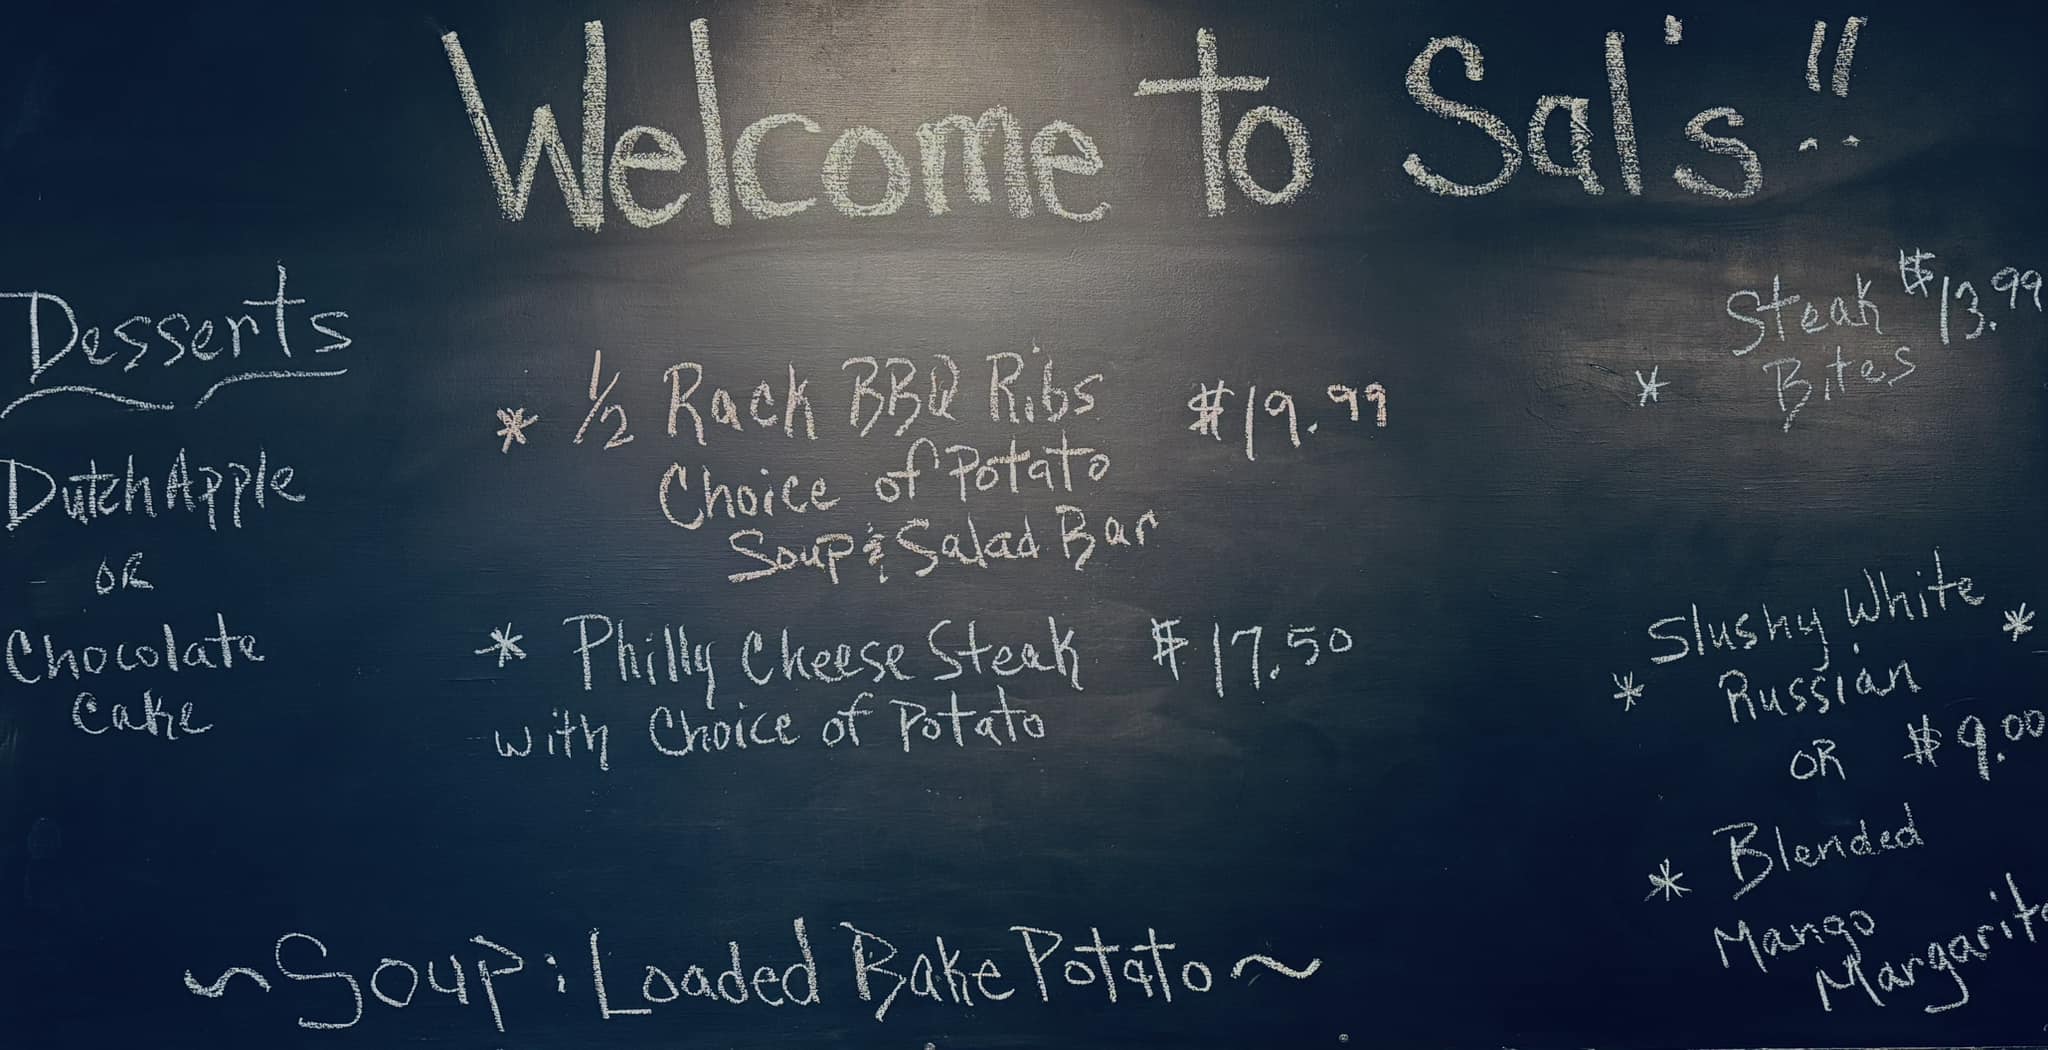 Welcome to Sal's!!
Desserts
Dutch Apple
OR
Chocolate
Cake
* 1/2 Rack BBQ Ribs $19.99
Choice of Potato
Soup & Salad Bar
* Philly Cheese Steak $17.50
with Choice of Potato
Steak $13.99
* Bites
Slushy White *
* Russian
OR $9.00
* Blended
Mango
Margarita
~Soup: Loaded Bake Potato~